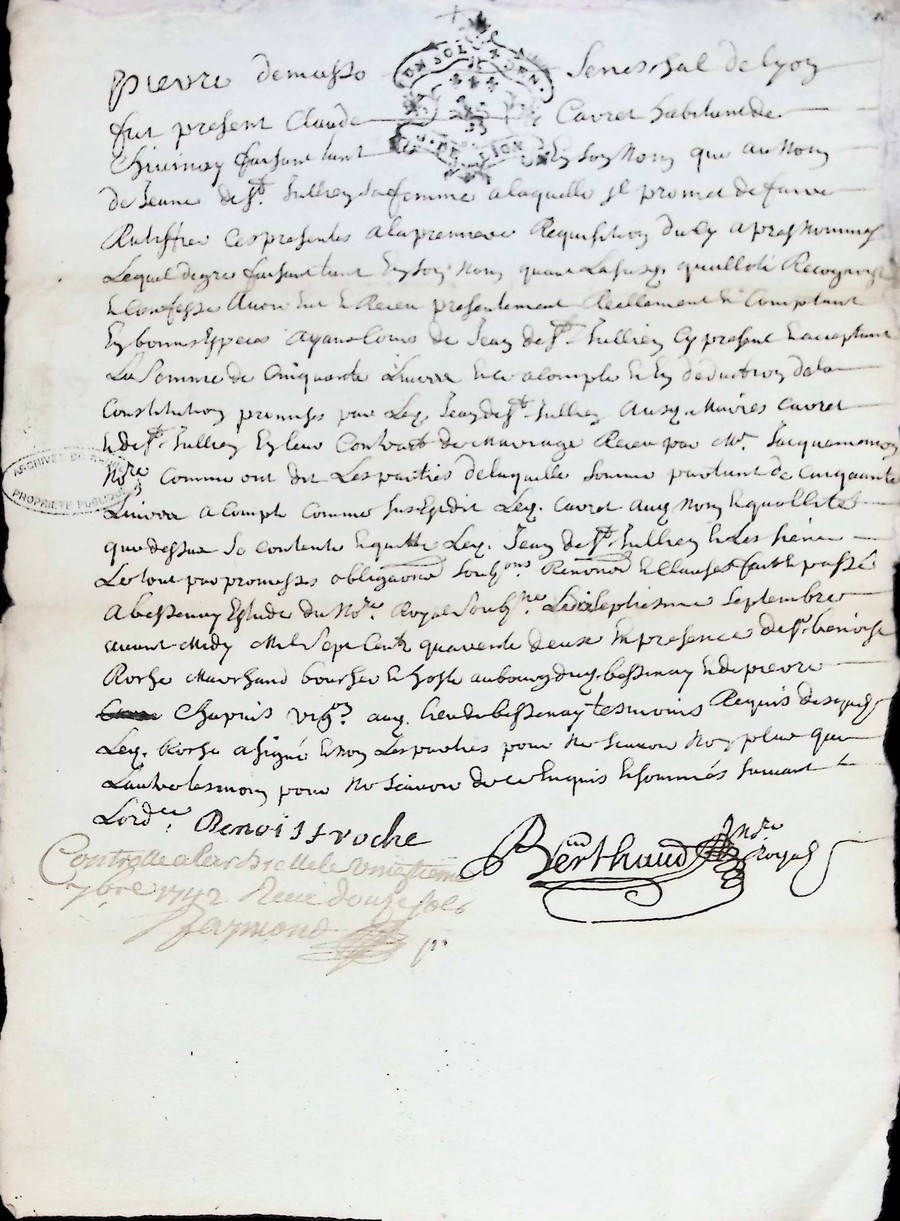 pierre demasso Seneschal de lyon
UN SOL 4 DEN.
G. DE LION
fut present Claude Cavret habitant de
faisant tant En Son Nom que au Nom
de Jeanne de St. Jullien Sa femme a laquelle Jl promet de faire
Rattiffier Ces presentes a la premiere Requisition du Cy apres Nommé
Lequel degré faisant tant En Son Nom quen La susq. quallité Recognoist
Et Confesse Avoir Eu Et Receu presentement Reellement Et Comptant
En bonnes Especes ayant Cours de Jean de St. Jullien Cy present Et acceptant
La Somme de Cinquante Livres Et ce a compte Et En deduction de la
Constitution promise par Led. Jean de St. Jullien Ausd. Mariés Cavret
Et de St. Jullien En leur Contract de Mariage Receu par Me. Jacquemeton
ARCHIVES DU RHONE
PROPRIÉTÉ PUBLIQUE
Nore Comme ont dit Les parties de laquelle Somme partant de Cinquante
Livres a Compte Comme Sus Est dit Led. Cavret Aux Nom Et quallités
que dessus Se contente Et quitte Led. Jean de St. Jullien Et Les Siens
Le tout par promesses obligaons Soubons Renonons Et Clauses fait Et passé
A bessenay Estude du Nore Royal Soubné Le dixseptiesme Septembre
avant Midy Mil Sept Cents quarente deux En presence de Sr. benoist
Roche Marchand boucher Et hoste au bourg dud. bessenay Et de pierre
Chapuis vignon aud. lieu de bessenay tesmoins Requis desquels
Led. Roche a signé Et Non Les parties pour Ne Scavoir Non plus que
Lautre tesmoin pour Ne Scavoir de ce Enquis Et sommés Suivant
Lordce. Benoist roche
Berthaud Nore royal
Controllé a Larbrelle le vingtieme
7bre 1742 Receu douze sols
Raymond